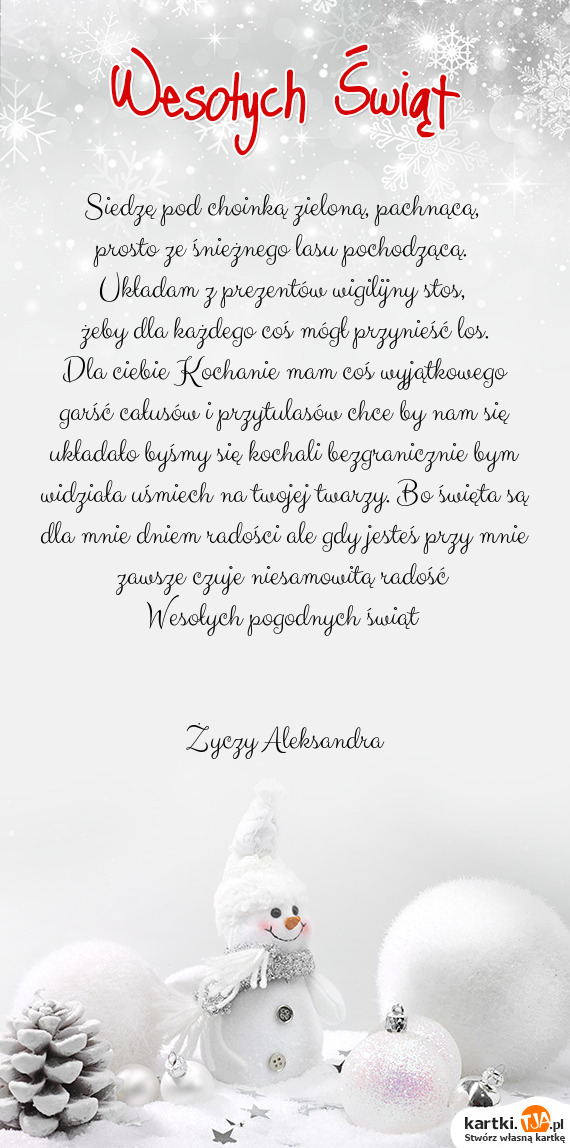 Wesołych Świąt
Siedzę pod choinką zieloną, pachnącą,
prosto ze śnieżnego lasu pochodzącą.
Układam z prezentów wigilijny stos,
żeby dla każdego coś mógł przynieść los.
Dla ciebie Kochanie mam coś wyjątkowego
garść całusów i przytulasów chce by nam się
układało byśmy się kochali bezgranicznie bym
widziała uśmiech na twojej twarzy. Bo święta są
dla mnie dniem radości ale gdy jesteś przy mnie
zawsze czuje niesamowitą radość
Wesołych pogodnych świąt
Życzy Aleksandra
kartki.TJA.pl
Stwórz własną kartkę